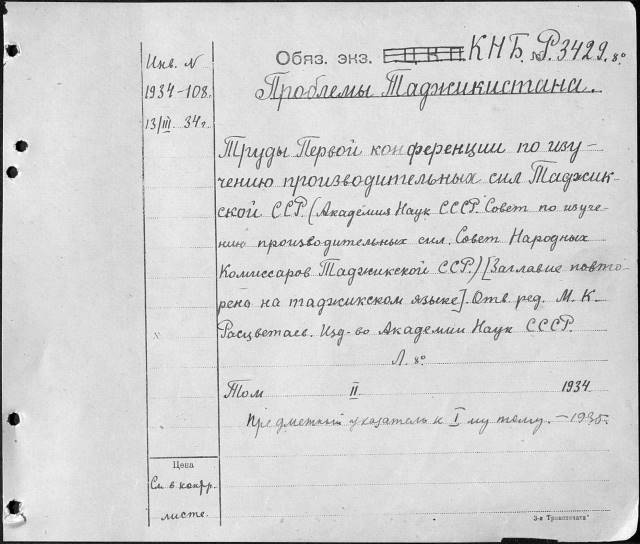 Инв. N
1934-108.
13/III 34г.
Обяз. экз. Е.Ц.К.П. КНБ. № Р.3429. 8°
Проблемы Таджикистана.
Труды Первой конференции по изу-
чению производительных сил Таджик-
ской ССР. (Академия Наук СССР. Совет по изуче-
нию производительных сил. Совет Народных
Комиссаров Таджикской ССР.) [Заглавие повто-
рено на таджикском языке]. Отв. ред. М. К.
Расцветаев. Изд-во Академии Наук СССР.
Л. 8°
Том II 1934
Предметный указатель к I му тому. – 1935.
Цена
См. в контр.
листе.
3-я Транспечать"